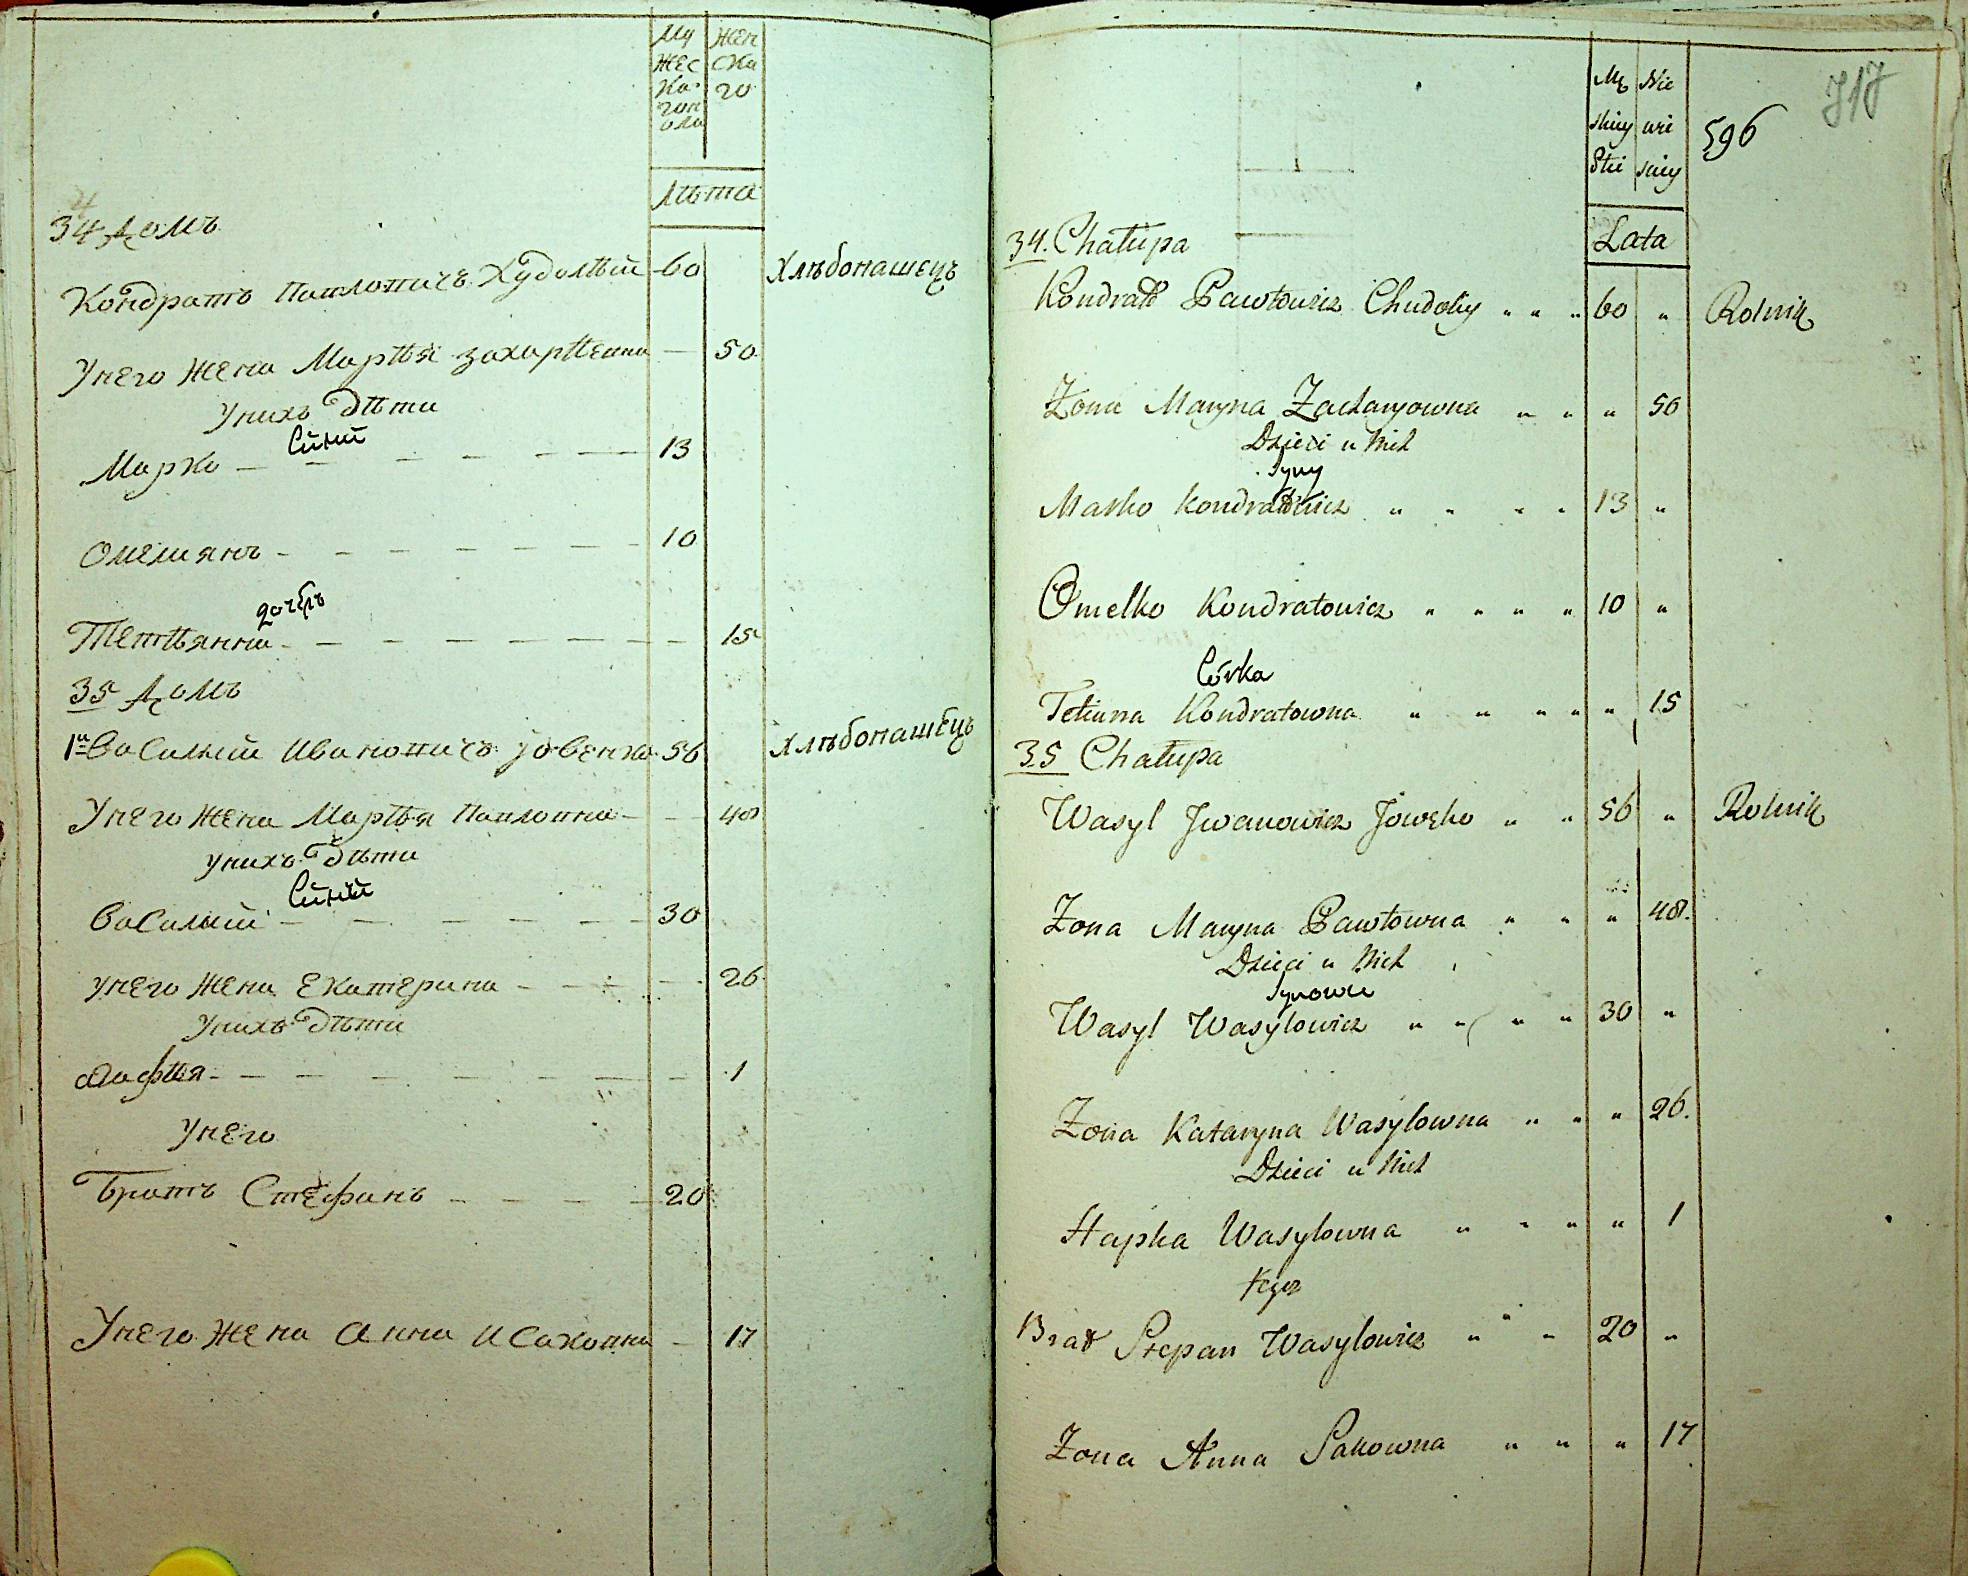 Му
жес
ка
гоп
ола
жен
ска
го
лѣта
34 домъ
Кондратъ Павловичъ Худолѣй 60 Хлѣбопашецъ
Унего жена Марья Захарѣвна — 50
Унихъ дѣти
Сынй
Марко — — — — — — 13
Омелиянъ — — — — — — 10
дочерь
Тетьянна — — — — — — 15
35 домъ
1й Василий Ивановичъ Іовенко 56 Хлѣбопашецъ
Унего жена Марья Павловна — — 48
унихъ дѣти
Сынй
Василий — — — — — — 30
унего жена Екатерина — — — — 26
Унихъ дѣти
Агафия — — — — — — 1
Унего
Братъ Стефанъ — — — — 20
Унего жена Анна Исаковна — 17
717
596
Mę
skiey
Płci
Nie
wie
sciey
Lata
34. Chałupa
Kondrat Pawłowicz Chudoliy " " " 60 " Rolnik
Żona Maryna Zacharyowna " " " 50
Dzieci u Nich
Syny
Marko Kondratowicz " " " " 13 "
Omelko Kondratowicz " " " " 10 "
Córka
Tetiana Kondratowna " " " " " 15
35 Chałupa
Wasyl Jwanowicz Jowęko " " 56 " Rolnik
Żona Maryna Pawłowna " " " 48.
Dzieci u Nich
Synowie
Wasyl Wasylowicz " " " " 30 "
Żona Kataryna Wasylowna " " " 26.
Dzieci u Nich
Hapka Wasylowna " " " " 1
Tegoz
Brat Stepan Wasylowicz " " " 20 "
Żona Anna Sakowna " " " 17